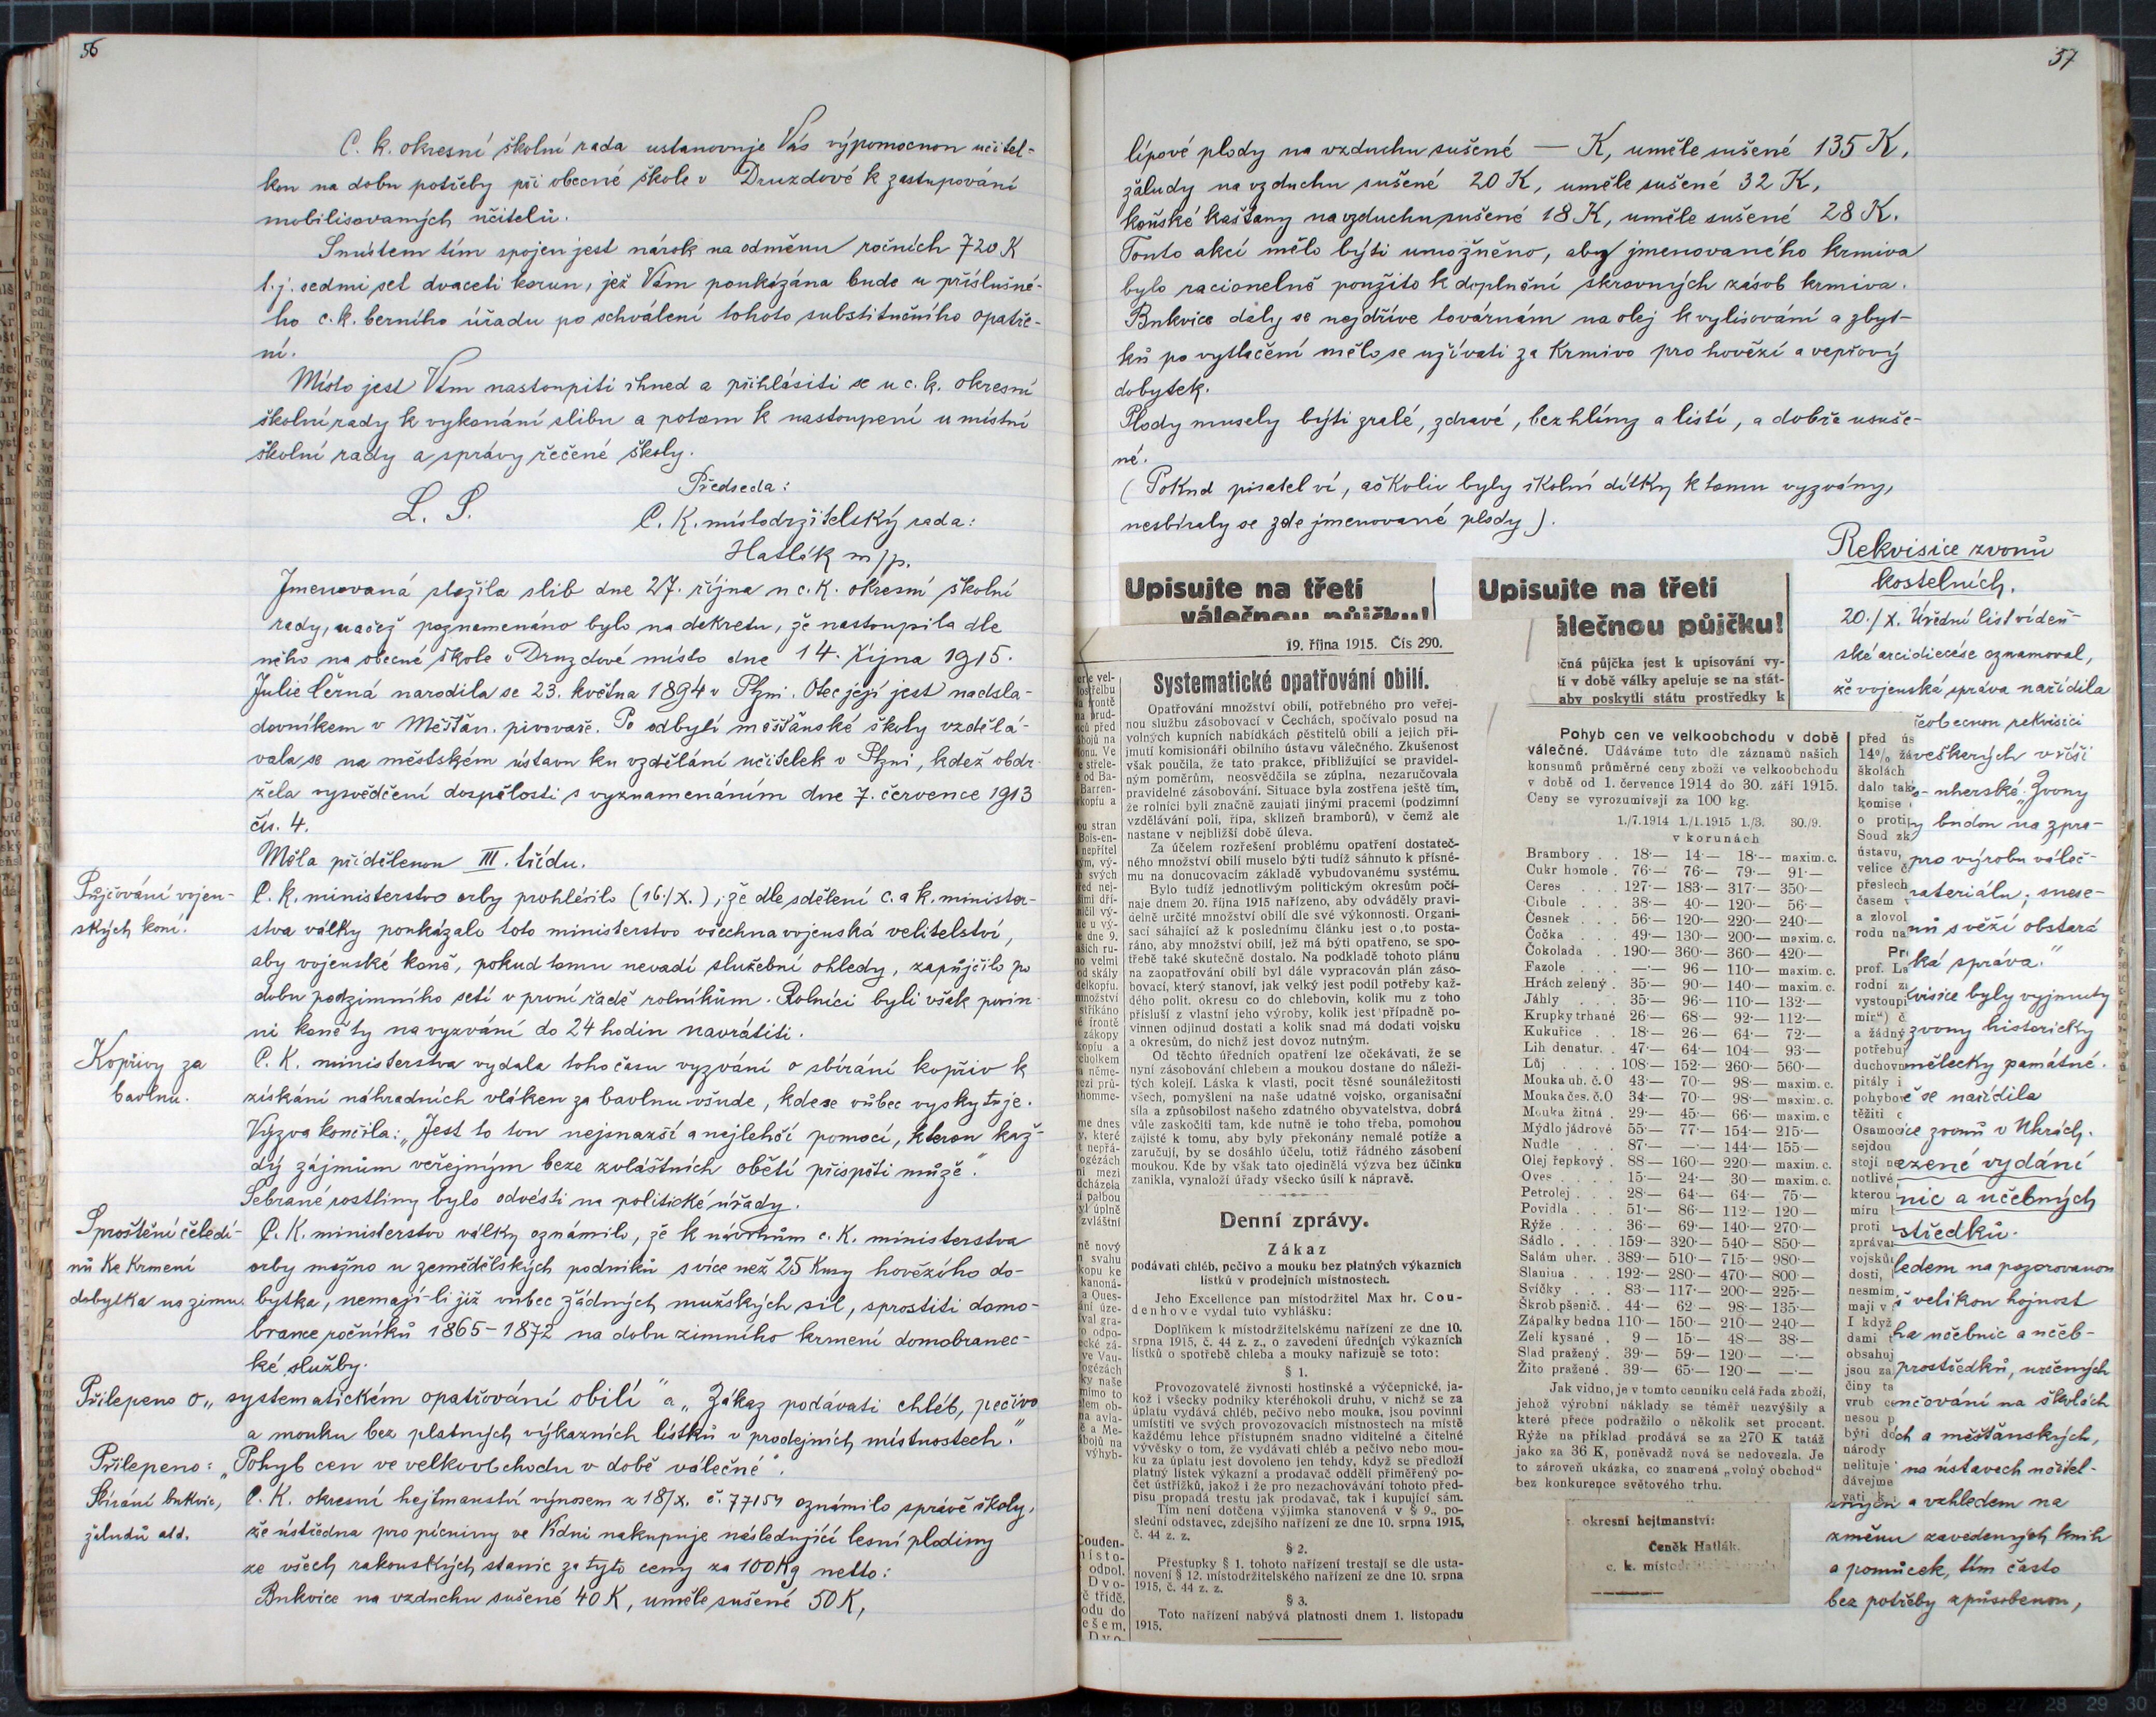 56
C. k. okresní školní rada ustanovuje Vás výpomocnou učitel-
kou na dobu potřeby při obecné škole v Druzdové k zastupování
mobilisovaných učitelů.
S místem tím spojen jest nárok na odměnu ročních 720 K
t. j. sedmi set dvaceti korun, jež Vám poukázána bude u příslušné-
ho c. k. berního úřadu po schválení tohoto substitučního opatře-
ní.
Místo jest Vám nastoupiti ihned a přihlásiti se u c. k. okresní
školní rady k vykonání slibu a potom k nastoupení u místní
školní rady a správy řečené školy.
Předseda:
L. S.
C. K. místodržitelský rada:
Hatlák m/p.
Jmenovaná složila slib dne 27. října u c. K. okresní školní
rady, načež poznamenáno bylo na dekretu, že nastoupila dle
něho na obecné škole v Druzdové místo dne 14. října 1915.
Julie Černá narodila se 23. května 1894 v Plzni. Otec její jest nadsla-
dovníkem v Měšťan. pivovaře. Po odbytí měšťanské školy vzdělá-
vala se na městském ústavu ku vzdělání učitelek v Plzni, kdež obdr-
žela vysvědčení dospělosti s vyznamenáním dne 7. července 1913
čís. 4.
Měla přidělenou III. třídu.
Půjčování vojen-
ských koní.
C. K. ministerstvo orby prohlásilo (16./X.), že dle sdělení c. a k. minister-
stva války poukázalo toto ministerstvo všechna vojenská velitelství,
aby vojenské koně, pokud tomu nevadí služební ohledy, zapůjčilo po
dobu podzimního setí v první řadě rolníkům. Rolníci byli však povin-
ni koně ty na vyzvání do 24 hodin navrátiti.
Kopřivy za
bavlnu.
C. K. ministerstva vydala toho času vyzvání o sbírání kopřiv k
získání náhradních vláken za bavlnu všude, kde se vůbec vyskytuje.
Výzva končila: „Jest to tou nejsnazší a nejlehčí pomocí, kterou kaž-
dý zájmům veřejným beze zvláštních obětí přispěti může."
Sebrané rostliny bylo odvésti na politické úřady.
Sproštění čeledí-
nů ke krmení
dobytka na zimu.
C. K. ministerstvo války oznámilo, že k návrhům c. K. ministerstva
orby možno u zemědělských podniků s více než 25 kusy hovězího do-
bytka, nemají-li již vůbec žádných mužských sil, sprostiti domo-
brance ročníků 1865-1872 na dobu zimního krmení domobranec-
ké služby.
Přilepeno o „systematickém opatřování obilí" a „Zákaz podávati chléb, pečivo
a mouku bez platných výkazních lístků v prodejních místnostech."
Přilepeno: „Pohyb cen ve velkoobchodu v době válečné".
Sbírání bukvic,
žaludů atd.
C. K. okresní hejtmanství výnosem z 18/X. č. 77154 oznámilo správě školy,
že ústředna pro pícniny ve Vídni nakupuje následující lesní plodiny
ze všech rakouských stanic za tyto ceny za 100 Kg netto:
Bukvice na vzduchu sušené 40 K, uměle sušené 50 K,
57
lípové plody na vzduchu sušené — K, uměle sušené 135 K,
žaludy na vzduchu sušené 20 K, uměle sušené 32 K,
koňské kaštany na vzduchu sušené 18 K, uměle sušené 28 K.
Touto akcí mělo býti umožněno, aby jmenovaného krmiva
bylo racionelně použito k doplnění skrovných zásob krmiva.
Bukvice daly se nejdříve továrnám na olej k vylisování a zbyt-
ků po vytlačení mělo se užívati za krmivo pro hovězí a vepřový
dobytek.
Plody musely býti zralé, zdravé, bez hlíny a listí, a dobře usuše-
né.
(Pokud pisatel ví, ačkoliv byly školní dítky k tomu vyzvány,
nesbíraly se zde jmenované plody).
Upisujte na třetí
válečnou půjčku!
19. října 1915. Čís 290.
Systematické opatřování obilí.
Opatřování množství obilí, potřebného pro veřej-
nou službu zásobovací v Čechách, spočívalo posud na
volných kupních nabídkách pěstitelů obilí a jejich při-
jmutí komisionáři obilního ústavu válečného. Zkušenost
však poučila, že tato prakce, přibližující se pravidel-
ným poměrům, neosvědčila se zúplna, nezaručovala
pravidelné zásobování. Situace byla zostřena ještě tím,
že rolníci byli značně zaujati jinými pracemi (podzimní
vzdělávání polí, řípa, sklizeň bramborů), v čemž ale
nastane v nejbližší době úleva.
Za účelem rozřešení problému opatření dostateč-
ného množství obilí muselo býti tudíž sáhnuto k přísné-
mu na donucovacím základě vybudovanému systému.
Bylo tudíž jednotlivým politickým okresům počí-
naje dnem 20. října 1915 nařízeno, aby odváděly pravi-
delně určité množství obilí dle své výkonnosti. Organi-
sací sáhající až k poslednímu článku jest o to posta-
ráno, aby množství obilí, jež má býti opatřeno, se spo-
třebě také skutečně dostalo. Na podkladě tohoto plánu
na zaopatřování obilí byl dále vypracován plán záso-
bovací, který stanoví, jak velký jest podíl potřeby kaž-
dého polit. okresu co do chlebovin, kolik mu z toho
přísluší z vlastní jeho výroby, kolik jest případně po-
vinnen odjinud dostati a kolik snad má dodati vojsku
a okresům, do nichž jest dovoz nutným.
Od těchto úředních opatření lze očekávati, že se
nyní zásobování chlebem a moukou dostane do náleži-
tých kolejí. Láska k vlasti, pocit těsné sounáležitosti
všech, pomyšlení na naše udatné vojsko, organisační
síla a způsobilost našeho zdatného obyvatelstva, dobrá
vůle zaskočiti tam, kde nutně je toho třeba, pomohou
zajisté k tomu, aby byly překonány nemalé potíže a
zaručují, by se dosáhlo účelu, totiž řádného zásobení
moukou. Kde by však tato ojedinělá výzva bez účinku
zanikla, vynaloží úřady všecko úsilí k nápravě.
Denní zprávy.
Zákaz
podávati chléb, pečivo a mouku bez platných výkazních
lístků v prodejních místnostech.
Jeho Excellence pan místodržitel Max hr. Cou-
denhove vydal tuto vyhlášku:
Doplňkem k místodržitelskému nařízení ze dne 10.
srpna 1915, č. 44 z. z., o zavedení úředních výkazních
lístků o spotřebě chleba a mouky nařizuje se toto:
§ 1.
Provozovatelé živností hostinské a výčepnické, ja-
kož i všecky podniky kteréhokoli druhu, v nichž se za
úplatu vydává chléb, pečivo nebo mouka, jsou povinni
umístiti ve svých provozovacích místnostech na místě
každému lehce přístupném snadno viditelné a čitelné
vývěsky o tom, že vydávati chléb a pečivo nebo mou-
ku za úplatu jest dovoleno jen tehdy, když se předloží
platný lístek výkazní a prodavač oddělí přiměřený po-
čet ústřižků, jakož i že pro nezachovávání tohoto před-
pisu propadá trestu jak prodavač, tak i kupující sám.
Tím není dotčena výjimka stanovená v § 9., po-
slední odstavec, zdejšího nařízení ze dne 10. srpna 1915,
č. 44 z. z.
§ 2.
Přestupky § 1. tohoto nařízení trestají se dle usta-
novení § 12. místodržitelského nařízení ze dne 10. srpna
1915, č. 44 z. z.
§ 3.
Toto nařízení nabývá platnosti dnem 1. listopadu
1915.
Upisujte na třetí
álečnou půjčku!
čná půjčka jest k upisování vy-
tí v době války apeluje se na stát-
aby poskytli státu prostředky k
Pohyb cen ve velkoobchodu v době
válečné. Udáváme tuto dle záznamů našich
konsumů průměrné ceny zboží ve velkoobchodu
v době od 1. července 1914 do 30. září 1915.
Ceny se vyrozumívají za 100 kg.
1./7.1914 1./1.1915 1./3. 30./9.
v korunách
Brambory . . 18·— 14·— 18·— maxim. c.
Cukr homole . 76·— 76·— 79·— 91·—
Ceres . . . 127·— 183·— 317·— 350·—
Cibule . . . 38·— 40·— 120·— 56·—
Česnek . . . 56·— 120·— 220·— 240·—
Čočka . . . 49·— 130·— 200·— maxim. c.
Čokolada . . 190·— 360·— 360·— 420·—
Fazole . . . —·— 96·— 110·— maxim. c.
Hrách zelený . 35·— 90·— 140·— maxim. c.
Jáhly . . . 35·— 96·— 110·— 132·—
Krupky trhané 26·— 68·— 92·— 112·—
Kukuřice . . 18·— 26·— 64·— 72·—
Líh denatur. . 47·— 64·— 104·— 93·—
Lůj . . . . 108·— 152·— 260·— 560·—
Mouka uh. č. O 43·— 70·— 98·— maxim. c.
Mouka čes. č. O 34·— 70·— 98·— maxim. c.
Mouka žitná . 29·— 45·— 66·— maxim. c
Mýdlo jádrové 55·— 77·— 154·— 215·—
Nudle . . . 87·— —·— 144·— 155·—
Olej řepkový . 88·— 160·— 220·— maxim. c.
Oves . . . . 15·— 24·— 30·— maxim. c.
Petrolej . . . 28·— 64·— 64·— 75·—
Povidla . . . 51·— 86·— 112·— 120·—
Rýže . . . . 36·— 69·— 140·— 270·—
Sádlo . . . . 159·— 320·— 540·— 850·—
Salám uher. . 389·— 510·— 715·— 980·—
Slanina . . . 192·— 280·— 470·— 800·—
Svíčky . . . 83·— 117·— 200·— 225·—
Škrob pšenič. . 44·— 62·— 98·— 135·—
Zápalky bedna 110·— 150·— 210·— 240·—
Zelí kysané . 9·— 15·— 48·— 38·—
Slad pražený . 39·— 59·— 120·— —·—
Žito pražené . 39·— 65·— 120·— —·—
Jak vidno, je v tomto cenníku celá řada zboží,
jehož výrobní náklady se téměř nezvýšily a
které přece podražilo o několik set procent.
Rýže na příklad prodává se za 270 K tatáž
jako za 36 K, poněvadž nová se nedovezla. Je
to zároveň ukázka, co znamená „volný obchod"
bez konkurence světového trhu.
okresní hejtmanství:
Čeněk Hatlák.
c. k. místo
Rekvisice zvonů
kostelních.
20./X. Úřední list vídeň-
ské arcidiecése oznamoval,
že vojenská správa nařídila
šeobecnou rekvisici
veškerých v říši
o- uherské. „Zvony
y budou na zpra-
pro výrobu váleč-
materiálu; snese-
nů s věží obstará
ká správa."
visice byly vyjmuty
zvony historicky
mělecky památné.
ě se nařídila
ice zvonů v Uhrách.
ezené vydání
nic a učebných
středků.
ledem na pozorovanou
š velikou hojnost
ha učebnic a učeb-
prostředků, určených
nčování na školách
ch a měšťanských,
na ústavech učitel-
ských a vzhledem na
změnu zavedených knih
a pomůcek, tím často
bez potřeby způsobenou,